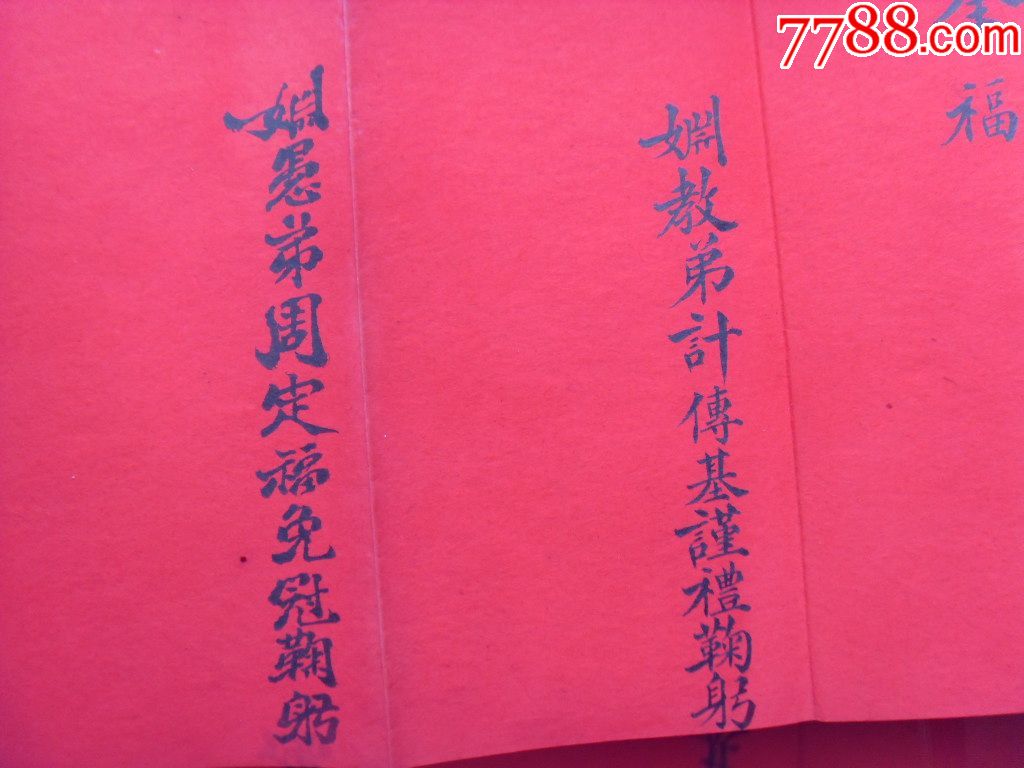 7788.com
福
姻教弟計傳基謹禮鞠躬
姻愚弟周定福免冠鞠躬